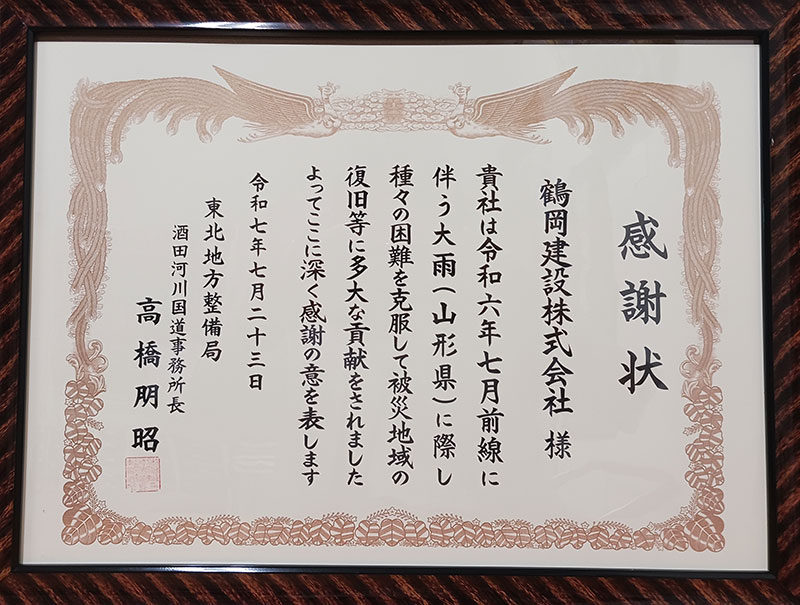 感謝状
鶴岡建設株式会社 様
貴社は令和六年七月前線に
伴う大雨(山形県)に際し
種々の困難を克服して被災地域の
復旧等に多大な貢献をされました
よってここに深く感謝の意を表します
令和七年七月二十三日
東北地方整備局
酒田河川国道事務所長
高橋明昭